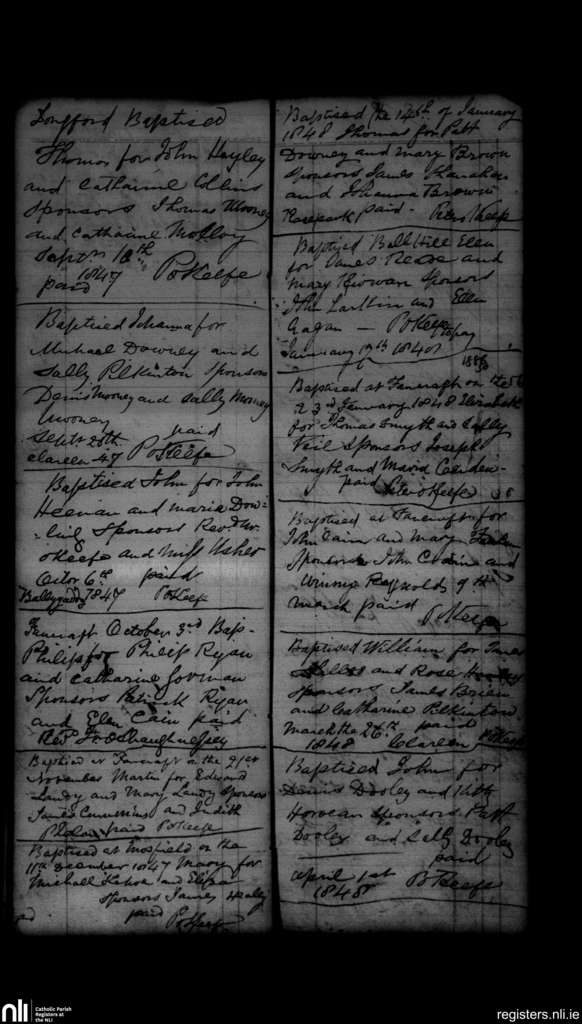 Longford Baptised
Thomas for John Hayley
and Catharine Collins
Sponsors Thomas Mooney
and Catharine Molloy
10th
1847 P OKeefe
paid
Baptised Johanna for
Michael Downey and
Sally Pilkinton Sponsors
Denis Mooney and Sally Mooney
Mooney
Septr 20th paid
Clareen 47 P OKeefe
Baptised John for John
Heenan and Maria Dow=
=ling Sponsors Revd Mr
OKeefe and Miss Usher
Octor 6th paid
1847 P OKeefe
Fancraft October 3rd Bap-
Philip for Philip Ryan
and Catharine Gorman
Sponsors Patrick Ryan
and Elen Cain paid
Revd OShaughnessy
Baptised at Fancraft on the 21st
November Martin for Edward
Landy and Mary Landy Sponsors
James Cummins and Judith
paid P OKeefe
Baptised at on the
11th December 1847 Mary for
Michael and Eliza
Sponsors James Healy
paid
P OKeefe
Baptised the 14th of January
1848 Thomas for Patt
Downey and Mary Brown
Sponsors James
and Johanna Brown
paid - OKeefe
Baptised Bell Hill Elen
for James and
Mary Sponsors
John Larkin and Ellen
Gagan - P OKeefe
January 19th 1848
Baptised at Fancraft on the
23rd January 1848 Elizabeth
for Thomas Smyth and Sally
Sponsors Joseph
Smyth and Maria
paid OKeefe
Baptised at Fancraft for
John Cain and Mary
Sponsors John and
Winny Reynolds 9th
March paid
P OKeefe
Baptised William for James
and Rose
Sponsors James Brien
and Catharine Pilkinton
March the 26th paid
1848 Clareen P OKeefe
Baptised John for
Daniel Dooley and
Sponsors Patt
Dooley and Sally Dooley
paid
April 1st P OKeefe
1848
nli
Catholic Parish
Registers at
the NLI
registers.nli.ie